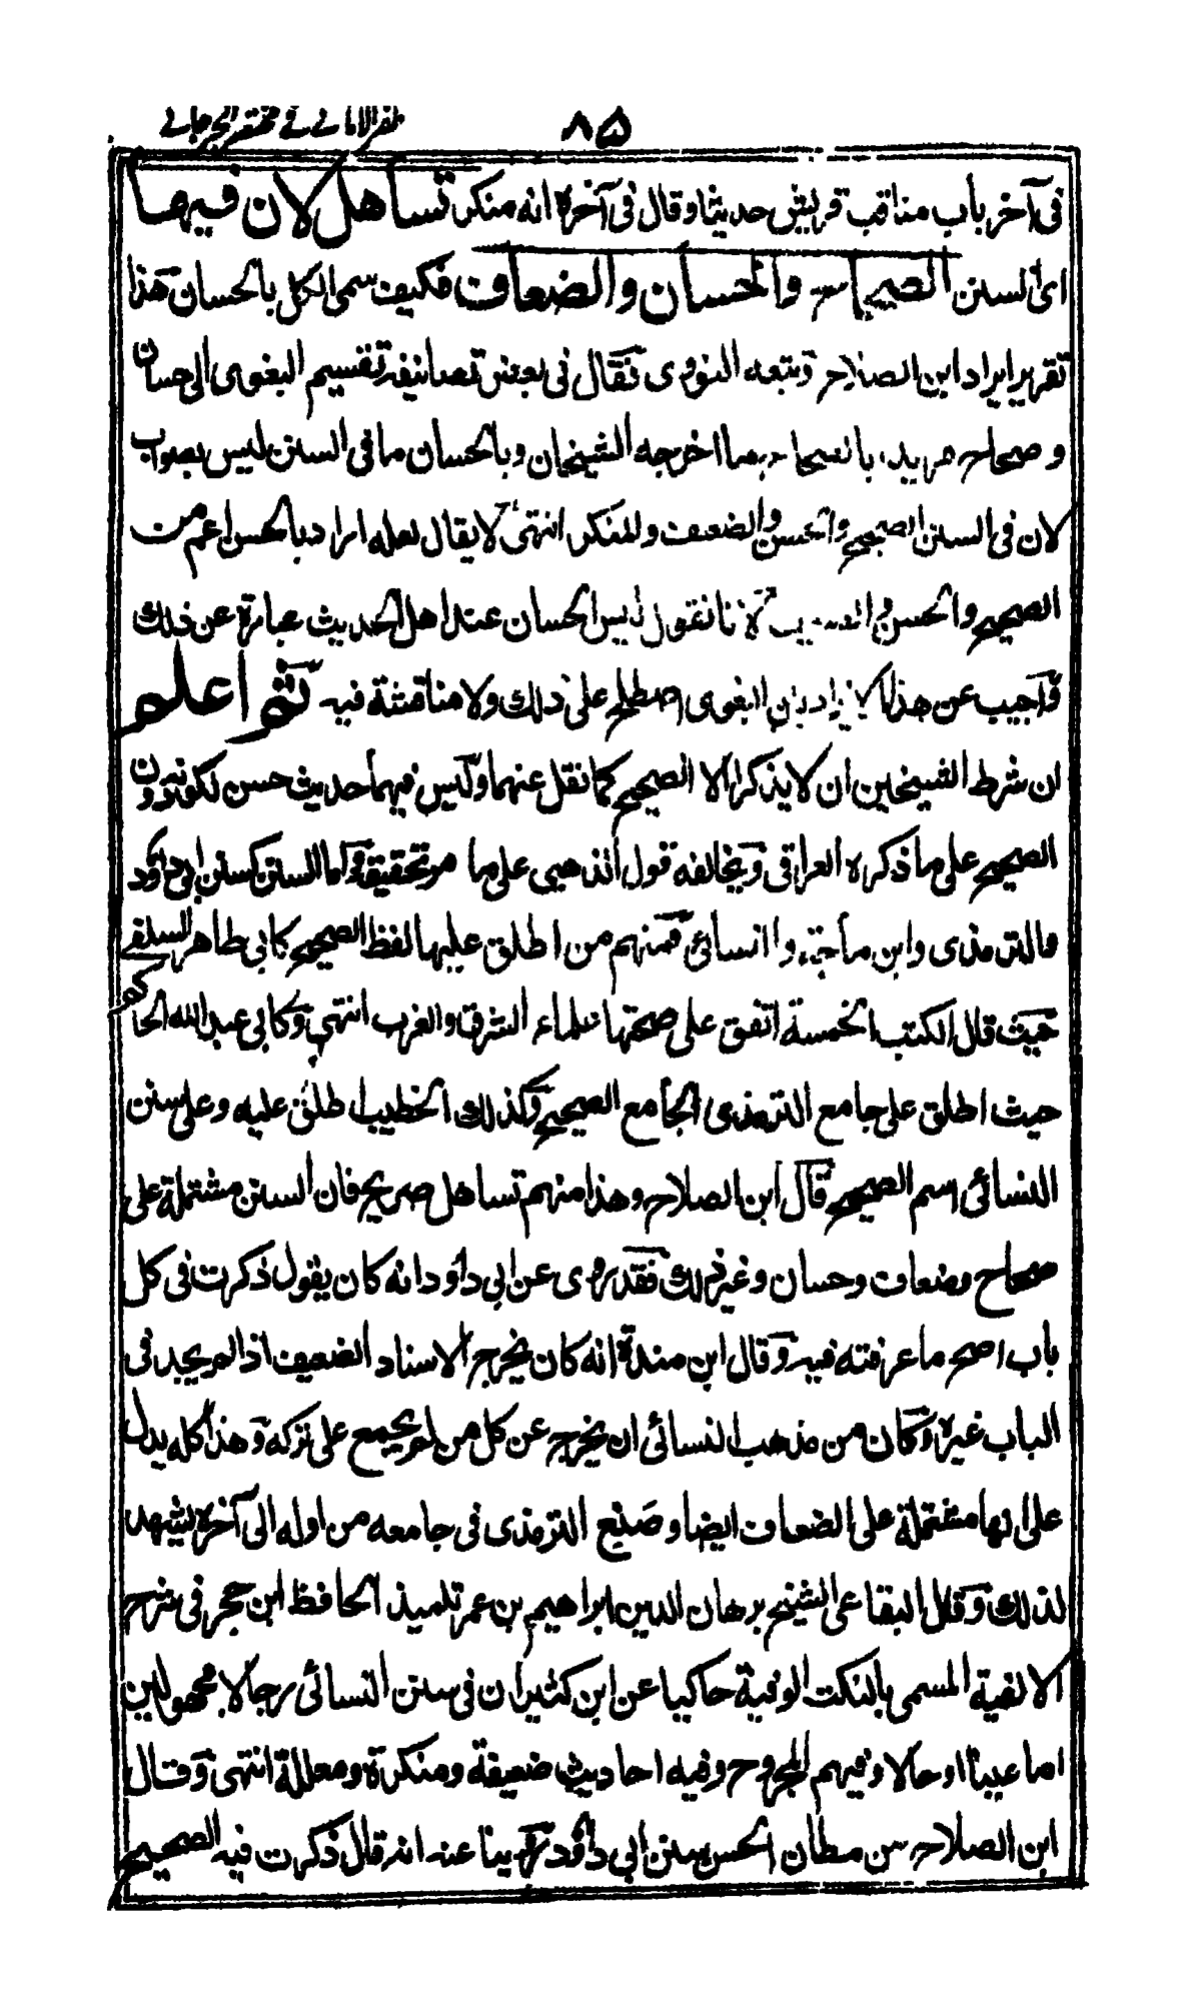 ٨٥
ظفر الامانى فى مختصر الجرجانى
فى آخر باب مناقب قريش حديثا وقال فى آخره انه منكر تساهل لان فيها
اى السنن الصحاح والحسان والضعاف فكيف سمى الكل بالحسان هذا
تقرير ايراد ابن الصلاح وتبعه النووى فقال فى بعض تصانيفه تقسيم البغوى الى حسان
وصحاح مريدا بالصحاح ما اخرجه الشيخان وبالحسان ما فى السنن ليس بصواب
لان فى السنن الصحيح والحسن والضعيف والمنكر انتهى لا يقال لعله اراد بالحسن اعم من
الصحيح والحسن و لانا نقول ليس الحسان عند اهل الحديث عبارة عن ذلك
واجيب عن هذا الايراد بان البغوى اصطلح على ذلك ولا مناقشة فيه ثم اعلم
ان شرط الشيخين ان لا يذكرا الا الصحيح كما نقل عنهما وليس فيهما حديث حسن لكونه دون
الصحيح على ما ذكره العراقى ويخالفه قول الذهبى على ما مر تحقيقه واما السنن كسنن ابى داود
والترمذى وابن ماجة والنسائى فمنهم من اطلق عليها لفظ الصحيح كابى طاهر السلفى
حيث قال الكتب الخمسة اتفق على صحتها علماء الشرق والغرب انتهى وكابى عبد الله الحاكم
حيث اطلق على جامع الترمذى الجامع الصحيح وكذلك الخطيب اطلق عليه وعلى سنن
النسائى اسم الصحيح قال ابن الصلاح وهذا منهم تساهل صريح فان السنن مشتملة على
صحاح وضعاف وحسان وغير ذلك فقد روى عن ابى داود انه كان يقول ذكرت فى كل
باب اصح ما عرفته فيه وقال ابن مندة انه كان يخرج الاسناد الضعيف اذا لم يجد فى
الباب غيره وكان من مذهب النسائى ان يخرج عن كل من لم يجمع على تركه وهذا كله يدل
على انها مشتملة على الضعاف ايضا وصنيع الترمذى فى جامعه من اوله الى آخره يشهد
لذلك وقال البقاعى الشيخ برهان الدين ابراهيم بن عمر تلميذ الحافظ ابن حجر فى شرح
الالفية المسمى بالنكت الوفية حاكيا عن ابن كثير ان فى سنن النسائى رجالا مجهولين
اما عينا او حالا وفيهم المجروح وفيه احاديث ضعيفة ومنكرة ومعللة انتهى وقال
ابن الصلاح من مظان الحسن سنن ابى داود روينا عنه انه قال ذكرت فيه الصحيح